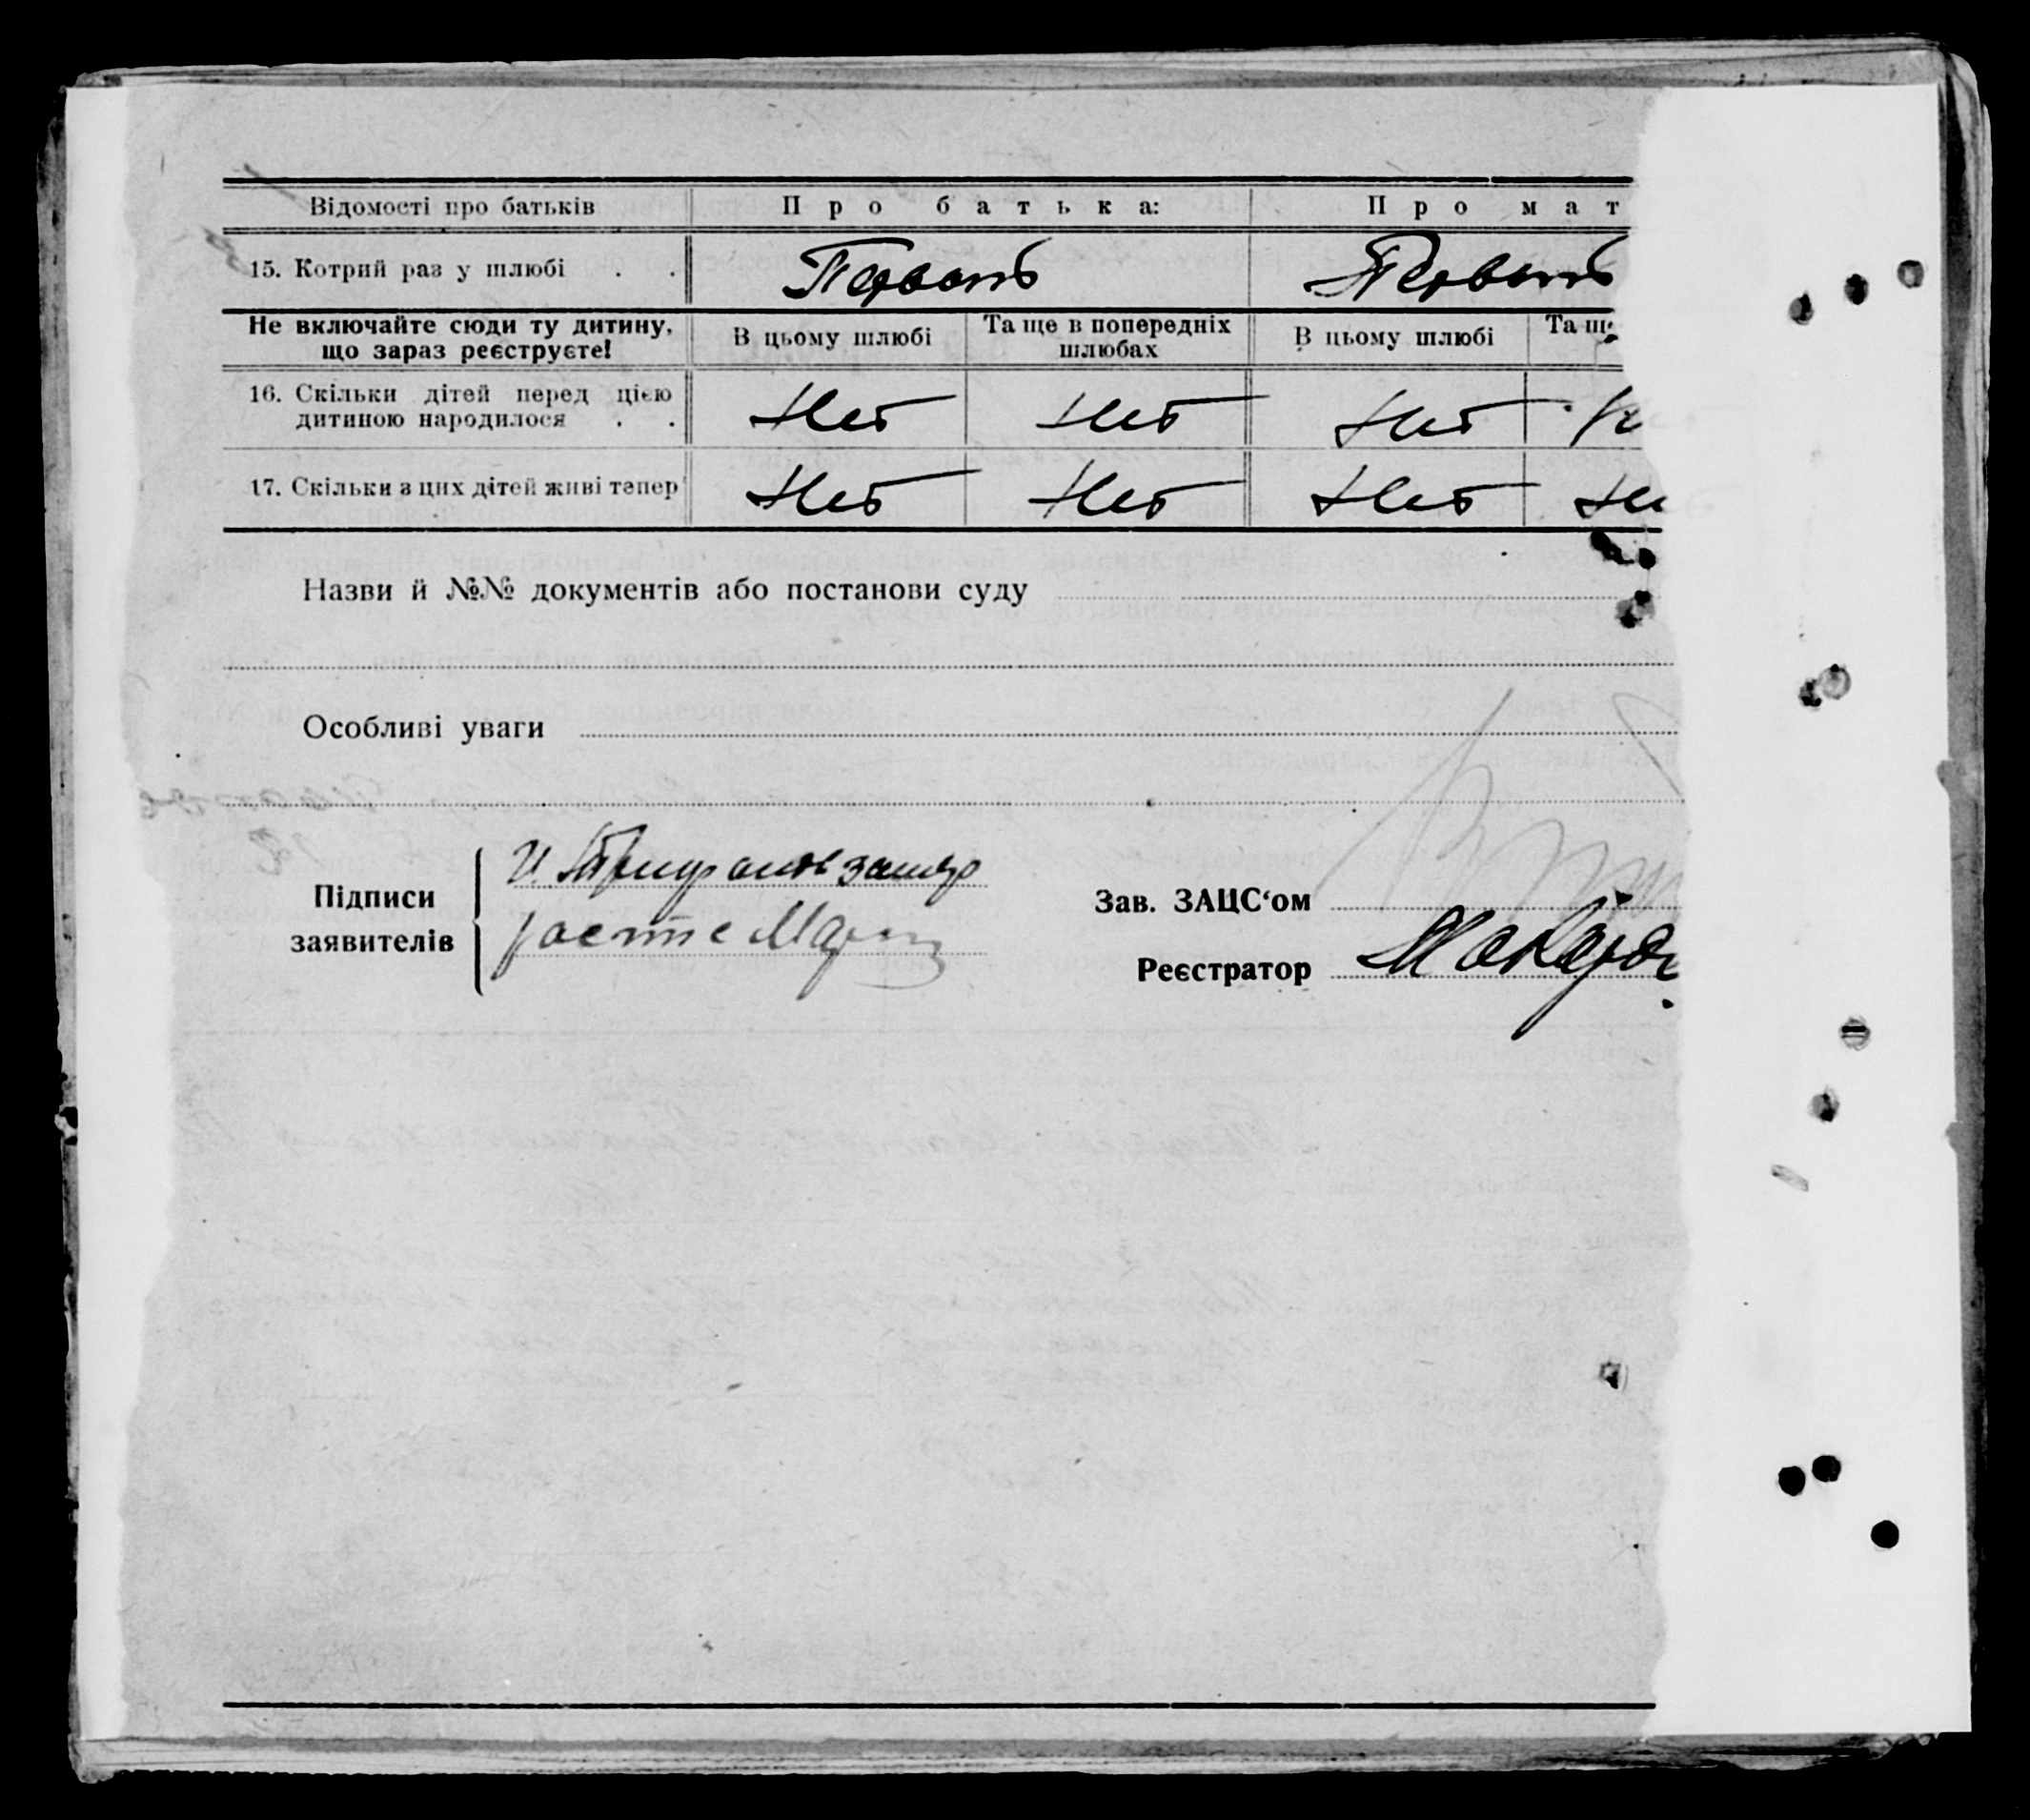 Відомості про батьків Про батька: Про мат
15. Котрий раз у шлюбі . . Первый Первый
Не включайте сюди ту дитину, що зараз реєструєте! В цьому шлюбі Та ще в попередніх шлюбах В цьому шлюбі Та ще
16. Скільки дітей перед цією дитиною народилося . . Нет Нет Нет Н
17. Скільки з цих дітей живі тепер Нет Нет Нет Не
Назви й №№ документів або постанови суду
Особливі уваги
Підписи заявителів
Зав. ЗАЦС‘ом
Реєстратор